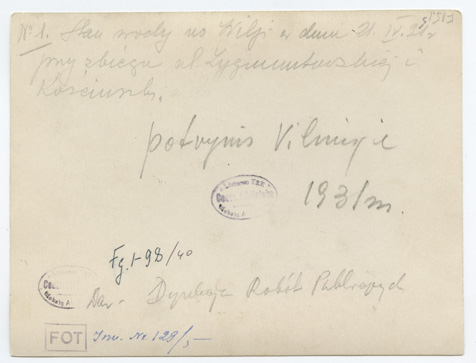 No 1. Stan wody na Wilji w dniu 21. IV. 31 r
przy zbiegu ul. Zygmuntowskiej i
Kościuszki.
potvynis Vilniuje
1931 m.
Fg. 1-98/40
Dar. Dyrekcja Robót Publicznych
FOT
Inw. No 128/5